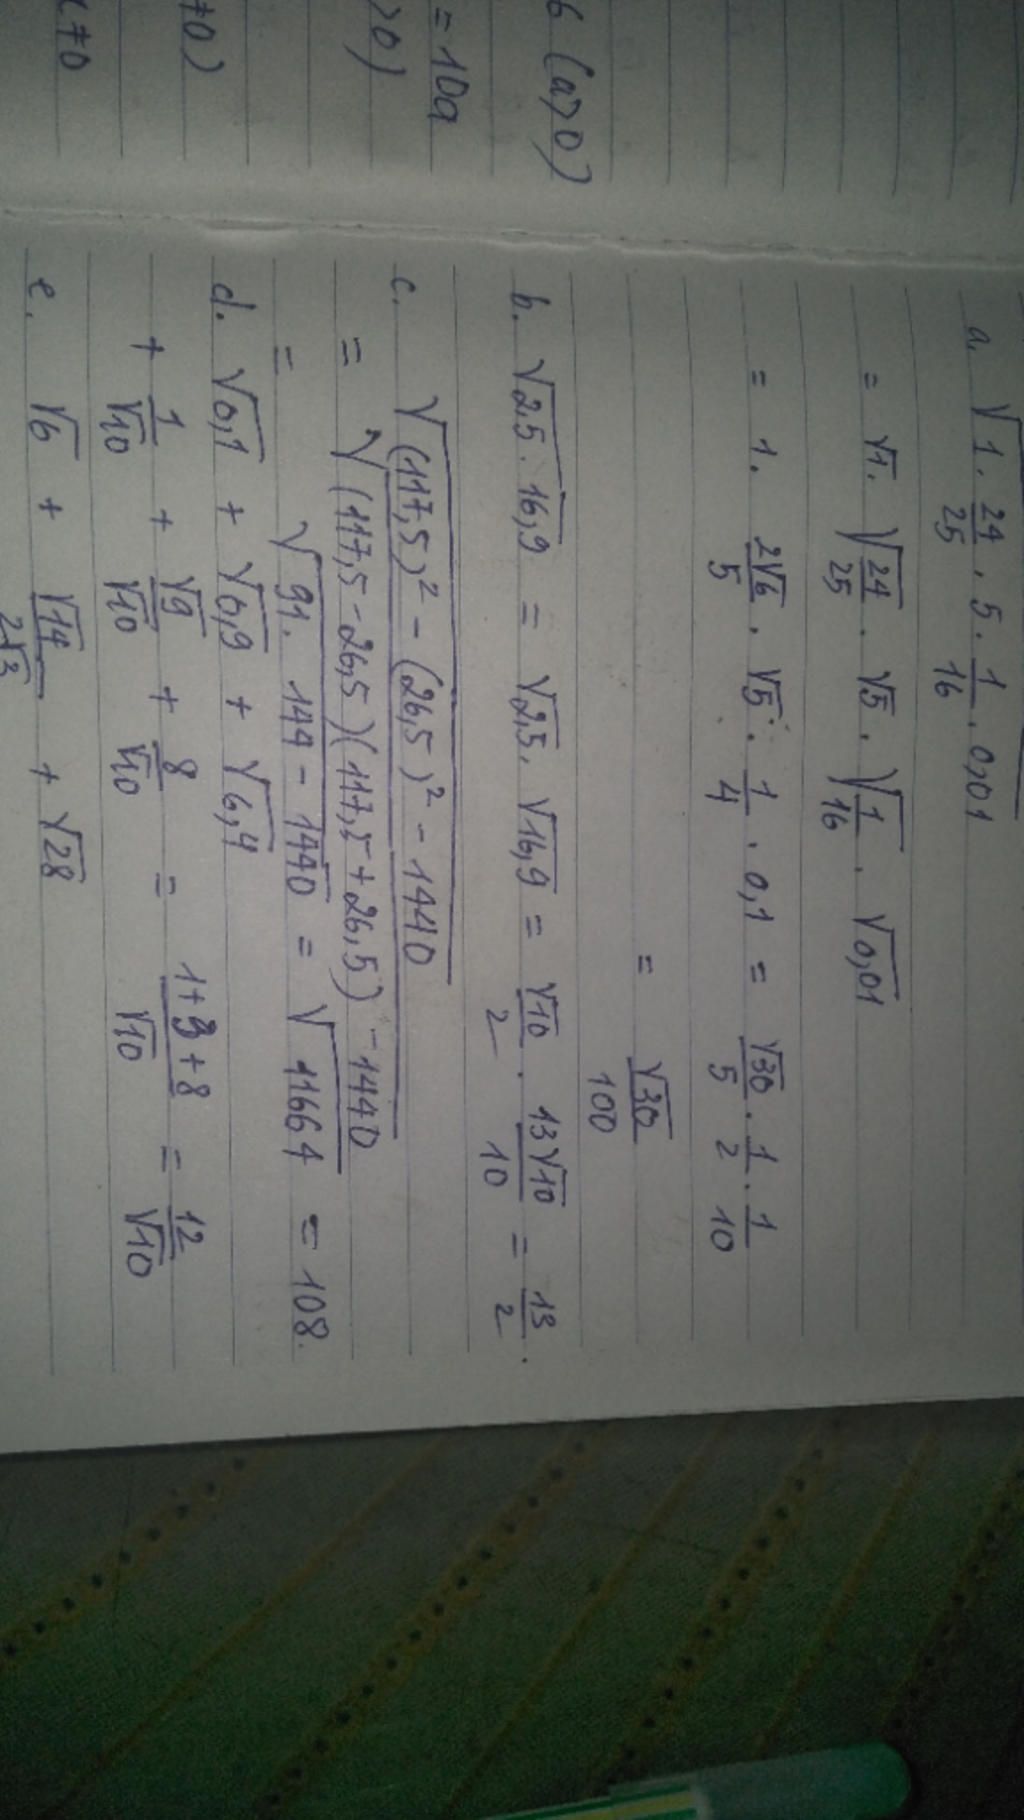 6 (a>0)
= 10a
>0)
≠0)
≠0
a. √(1 . 24/25 . 5 . 1/16 . 0,01)
= √1 . √(24/25) . √5 . √(1/16) . √0,01
= 1 . 2√6/5 . √5 . 1/4 . 0,1 = √30/5 . 1/2 . 1/10
= √30/100
b. √(2,5 . 16,9) = √2,5 . √16,9 = √10/2 . 13√10/10 = 13/2 .
c. √((117,5)² - (26,5)² - 1440)
= √((117,5 - 26,5)(117,5 + 26,5) - 1440)
= √(91 . 144 - 1440) = √11664 = 108.
d. √0,1 + √0,9 + √6,4
+ 1/√10 + √9/√10 + 8/√10 = (1+3+8)/√10 = 12/√10
e. √6 + √14/2√3 + √28